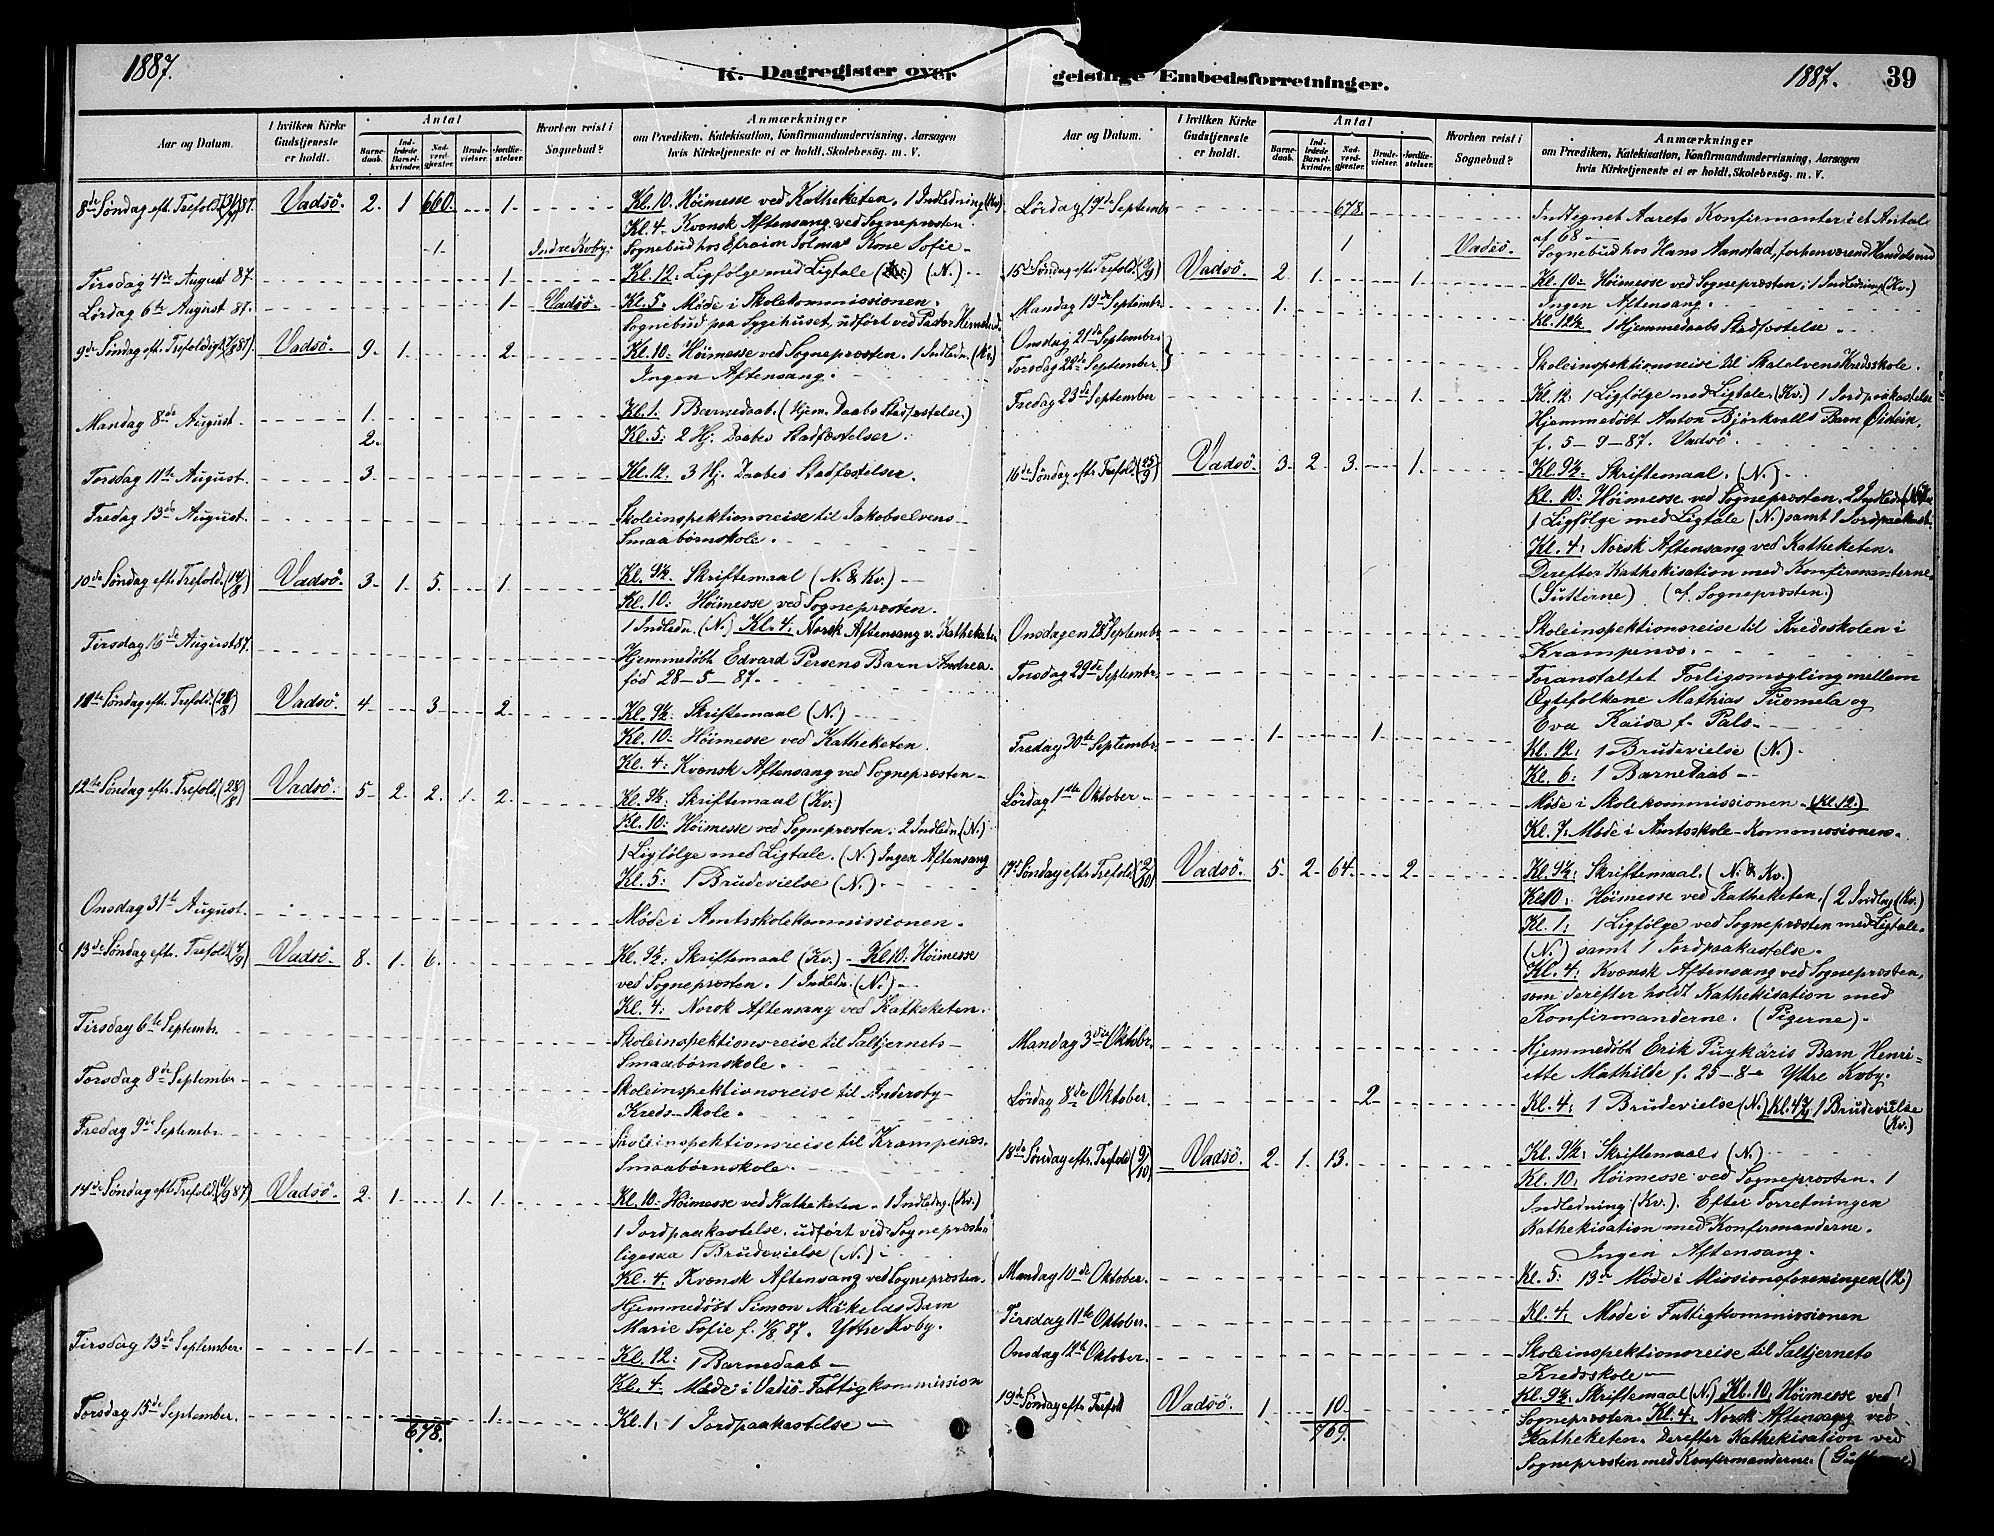 1887.
K. Dagregister over geistlige Embedsforretninger.
1887. 39
Aar og Datum.
I hvilken Kirke Gudstjeneste er holdt.
Antal
Barne-daab.
Ind-ledede Barsel-kvinder.
Nad-verd-gjester.
Brude-vielser.
Jordfæ-stelser.
Hvorhen reist i Sognebud?
Anmærkninger
om Prædiken, Katekisation, Konfirmandundervisning, Aarsagen
hvis Kirketjeneste ei er holdt, Skolebesög. m. V.
8de Søndag eft. Trefold. (31/7 87. Vadsö. 2 1 660. 1 Kl. 10. Höimesse ved Katheketen. 1 Indledning (Kv.)
Kl. 4. Kvænsk Aftensang ved Sognepræsten.
1 Indre Kvby. Sognebud hos Efraim Kone Sofie
Tirsdag 4de August 87. 1 Kl. 12: Ligfölge med Ligtale (N.)
Lördag 6te August 87. 1 Vadsö. Kl. 5. Möde i Skolekommissionen.
Sognebud paa Sygehuset, udfört ved Pastor
9de Søndag eft. Trefoldigh. (7/8 87). Vadsö. 9 1 2 Kl. 10: Höimesse ved Sognepræsten. 1 Indledn. (Kv.)
Ingen Aftensang.
Mandag 8de August. 1. Kl. 1. 1 Barnedaab. (Hjem. Daabs Stadfæstelse.)
2. Kl. 5: 2 Hj. Daabes Stadfæstelser.
Torsdag 11te August. 3 Kl. 12. 3 Hj. Daabes Stadfæstelser.
Fredag 13de August. Skoleinspektionsreise til Jakobselvens
Smaabørnskole.
10de Søndag eft. Trefold. (14/8) Vadsö. 3 1 5 1 Kl. 9½ Skriftemaal (N. & Kv.)
Kl. 10: Höimesse ved Sognepræsten.
1 Indledn. (N.) Kl. 4: Norsk Aftensang v. Katheketen
Tirsdag 16de August 87. Hjemmedöbt Edvard Persens Barn Andrea
föd 28-5-87.
11te Søndag eftr. Trefold. (21/8) Vadsö. 4 3 2 Kl. 9½ Skriftemaal (N.)
Kl. 10: Höimesse ved Katheketen.
Kl. 4: Kvænsk Aftensang ved Sognepræsten
12te Søndag eftr. Trefold. (28/8) Vadsö. 5 2 2 1 2 Kl. 9½: Skriftemaal (Kv.)
Kl. 10: Höimesse ved Sognepræsten: 2 Indledn. (N.)
1 Ligfölge med Ligtale. (N.) Ingen Aftensang
Kl. 5: 1 Brudevielse (N.)
Onsdag 31te August. Möde i Amtsskolekommissionen.
13de Søndag eftr. Trefold. (4/9) Vadsö. 8 1 6 Kl. 9½: Skriftemaal (Kv.) Kl 10: Höimesse
ved Sognepræsten. 1 Indledn. (N.)
Kl. 4: Norsk Aftensang ved Katheketen.
Tirsdag 6te Septembr. Skoleinspektionsreise til Saltjernets
Smaabørnskole.
Torsdag 8de September Skoleinspektionsreise til Andersby
Kreds-Skole.
Fredag 9de Septembr. Skoleinspektionsreise til Krampenæs.
Smaabørnskole.
14de Søndag eft. Trefold. (11/9 87) Vadsö. 2 1 1 1 Kl. 10: Höimesse ved Katheketen. 1 Indledng. (Kv.)
1 Jordpaakastelse, udfört ved Sognepræsten
ligesaa 1 Brudevielse (N.)
Kl. 4: Kvænsk Aftensang ved Sognepræsten.
Hjemmedöbt Simon Mäkeläs Barn
Marie Sofie f. 87. Ydtre Kvby.
Tirsdag 13de September. 1 Kl. 12: 1 Barnedaab
Kl. 4. Möde i Vadsö Fattigkommission
Torsdag 15de September. 1 Kl. 1: 1 Jordpaakastelse
678.
Aar og Datum.
I hvilken Kirke Gudstjeneste er holdt.
Antal
Barne-daab.
Ind-ledede Barsel-kvinder.
Nad-verd-gjester.
Brude-vielser.
Jordfæ-stelser.
Hvorhen reist i Sognebud?
Anmærkninger
om Prædiken, Katekisation, Konfirmandundervisning, Aarsagen
hvis Kirketjeneste ei er holdt, Skolebesög. m. V.
Lördag 17de Septembr 678. Indtegnet Aarets Konfirmanter i et Antal
af 68
1 Vadsö. Sognebud hos Hans Aanstad, forhenværend Handelsmd
15de Søndag eftr. Trefold. Vadsö. 2 1 1 Kl. 10: Höimesse ved Sognepræsten; 1 Indledning (Kv.)
Ingen Aftensang.
Mandag 19de Septembr. 1. Kl. 12½ 1 Hjemmedaabs Stadfæstelse
Onsdag 21de Septembr.
Torsdag 22de September Skoleinspektionsreise til Skatelvens Kredsskole.
Fredag 23de September 1. Kl. 12: 1 Ligfölge med Ligtale, (Kv.) 1 Jordpaakastelse
Hjemmedöbt Anton Björkvalls Barn Öistein,
f. 5-9-87. Vadsö.
16de Søndag eftr. Trefold. (25/9) Vadsö. 3 2 3 1 Kl. 9½: Skriftemaal. (N.)
Kl. 10: Höimesse ved Sognepræsten. 2 Indledn.
1 Ligfölge med Ligtale (N.) samt 1 Jordpaakast.
Kl. 4: Norsk Aftensang ved Katheketen.
Derefter Kathekisation med Konfirmanterne
(Gutterne) (af Sognepræsten.)
Onsdagen 28de Septembr Skoleinspektionsreise til Kredsskolen i
Krampenæs.
Torsdag 29de Septembr. Foranstaltet Forligsmægling mellem
Ægtefolkene Mathias Tuomela og
Eva Kaisa f. Palo.
Fredag 30te Septembr. 1 1 Kl. 12: 1 Brudevielse (N.)
Kl. 6: 1 Barnedaab
Lördag 1ste Oktober Möde i Skolekommissionen (Kl. 12.)
Kl. 7: Möde i Amtsskole-Kommissionen.
17de Søndag eftr. Trefold. (2/10) Vadsö. 5 2 64 2 Kl. 9½: Skriftemaal. (N. & Kv.)
Kl 10: Höimesse ved Katheketen. (2 Indledng (Kv.)
Kl. 1: 1 Ligfölge ved Sognepræsten med Ligtale.
(N.) samt 1 Jordpaakastelse.
Kl. 4: Kvænsk Aftensang ved Sognepræsten,
som derefter holdt Kathekisation med
Konfirmanderne. (Pigerne)
Mandag 3die Oktobr. Hjemmedöbt Erik Puykäris Barn Henri-
ette Mathilde f. 25-8 Ydtre Kvby.
Lördag 8de Oktober. 2 Kl. 4: 1 Brudevielse (N.) Kl. 4½ 1 Brudevielse
(Kv.)
18de Søndag eftr. Trefold. (9/10) Vadsö. 2 1 13. Kl. 9½: Skriftemaal (N.)
Kl. 10: Höimesse ved Sognepræsten. 1
Indledning (Kv.). Efter Forretningen
Kathekisation med Konfirmanderne.
Ingen Aftensang.
Mandag 10de Oktober. Kl. 5: 13de Möde i Missionsforeningen (12)
Tirsdag 11te Oktober. Kl. 4: Möde i Fattigkommissionen
Onsdag 12te Oktober. Skoleinspektionsreise til Saltjernets
Kredsskole
19de Søndag eftr. Trefold Vadsö. 1 10 Kl. 9½: Skriftemaal (N.) Kl. 10: Höimesse ved
Sognepræsten. Kl. 4: Norsk Aftensang ved
769. Katheketen. Derefter Kathekisation ved
Sognepræsten med Konfirmanderne. (Gutterne)